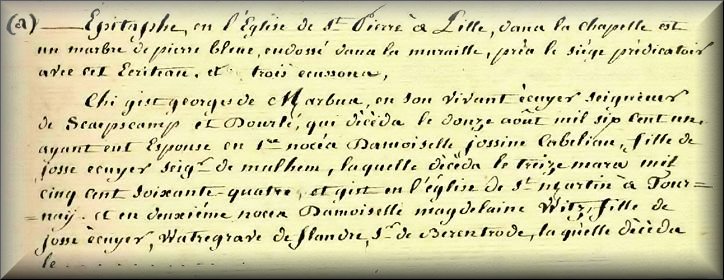 (a) — Epitaphe, en l'Eglise de St Pierre à Lille, dans la chapelle est
un marbre de pierre bleue, endossé dans la muraille, près le siège prédicatoir
avec cet Ecriteau, et trois ecussons,
Chi gist georges de Marbua, en son vivant écuyer seigneur
de Scaepscamp et Dourlé, qui décéda le douze août mil six cent un,
ayant eut Espouse en 1re noces Damoiselle jossine Cabeliau, fille de
josse ecuyer seigr de mulhem, laquelle décéda le treize mars mil
cinq cent soixante-quatre, et gist en l'église de St Martin à Tour-
=nay. et en deuxième noces Damoiselle magdelaine Witz, fille de
josse ècuyer, Watregrave de flandre, Sr de Berentrode, laquelle décéda
le . . . . . . . . . . . . . . . . .